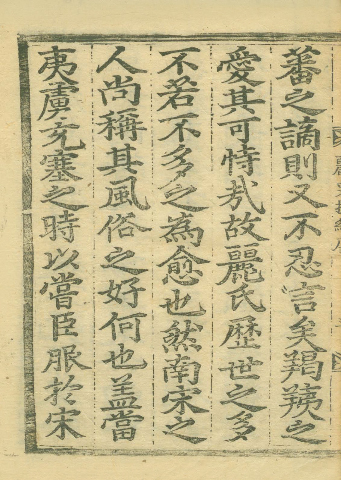 蕃之謫則又不忍言矣羯羠之
愛其可恃㢤故麗氏歷世之多
不若不多之為愈也然南宋之
人尚稱其風俗之好何也盖當
夷虜充塞之時以嘗臣服於宋